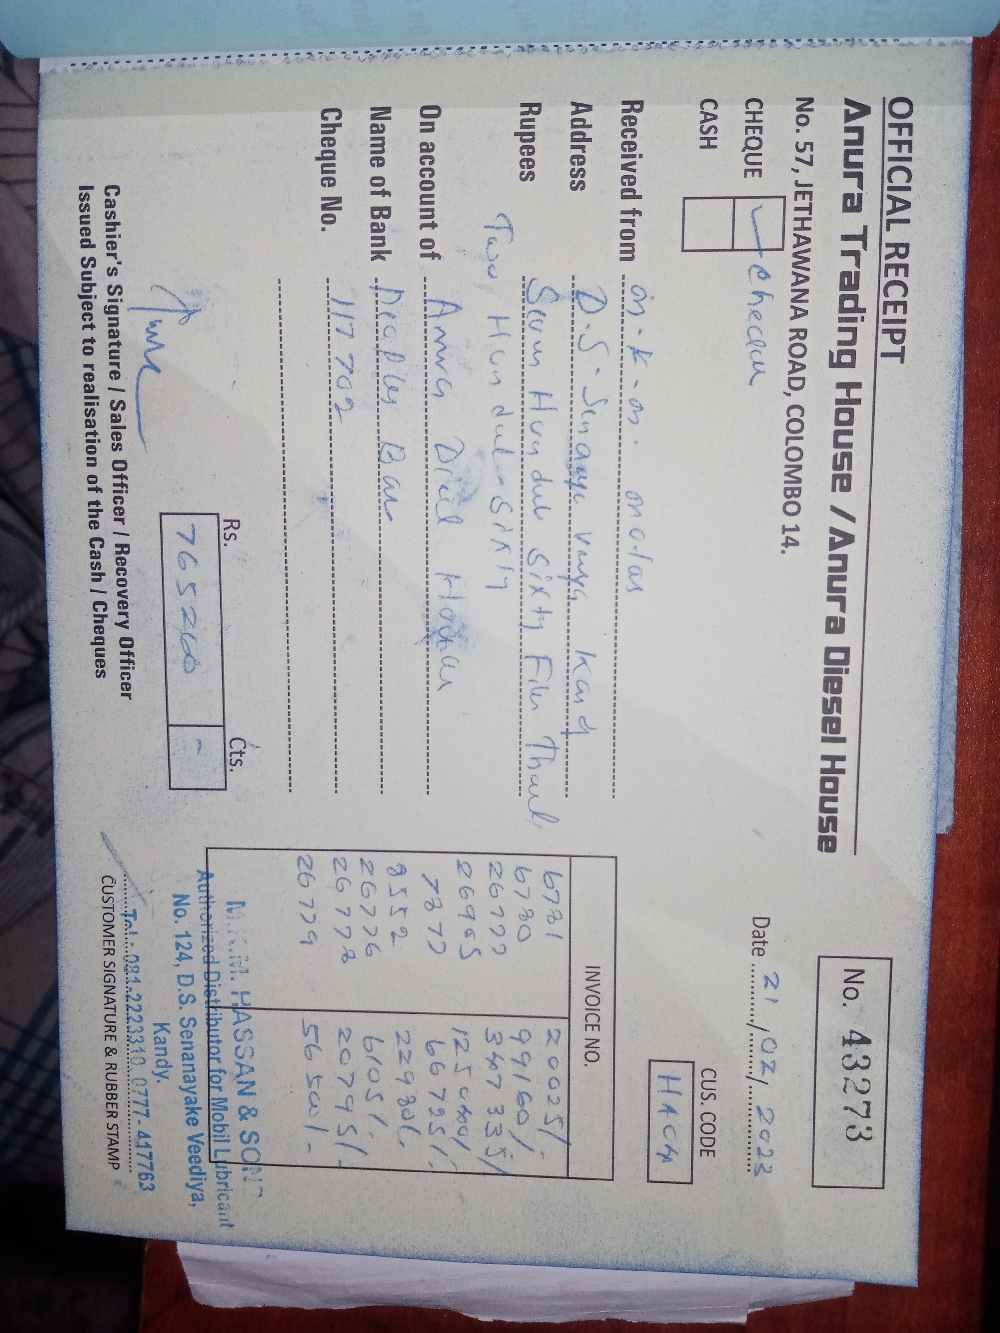 OFFICIAL RECEIPT
Anura Trading House / Anura Diesel House
No. 57, JETHAWANA ROAD, COLOMBO 14.
No. 43273
Date 21/02/2023
CHEQUE
CASH
CUS. CODE
Received from
Address D.S. Kandy
Rupees Hundred Sixty
Two Hundred Sixty
On account of Anura
Name of Bank
Cheque No. 117702
INVOICE NO.
6781 20025/-
6780 99160/-
26777 347335/
26965
7877 66725/-
22980/-
26776 6105/-
26778 20795/-
26779 56500/-
Rs. Cts.
765260 -
Cashier's Signature / Sales Officer / Recovery Officer
Issued Subject to realisation of the Cash / Cheques
M.K.M. HASSAN & SONS
Authorized Distributor for Mobil Lubricant
No. 124, D.S. Senanayake Veediya,
Kandy.
Tel : 081-2223310 0777-417763
CUSTOMER SIGNATURE & RUBBER STAMP